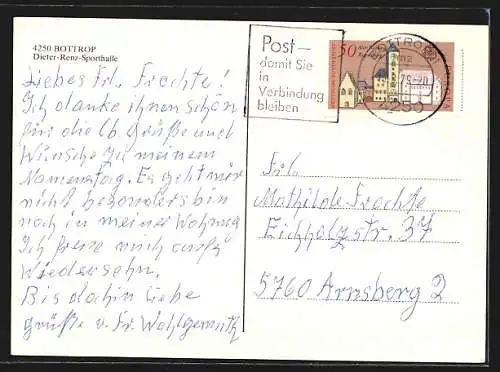 4250 BOTTROP
Dieter-Renz-Sporthalle
Liebes Frl. Frachte!
Ich danke ihnen schön
für die lb Grüße und
Wünsche zu meinem
Namenstag. Es geht mir
nicht besonders bin
noch in meiner Wohnung
Ich freue mich aufs
Wiedersehn.
Bis dahin liebe
Grüße v. Fr. Wohlgemuth
Post –
damit Sie
in
Verbindung
bleiben
50
BOTTROP
4250
Frl.
Mathilde Frachte
Eichholzstr. 37
5760 Arnsberg 2